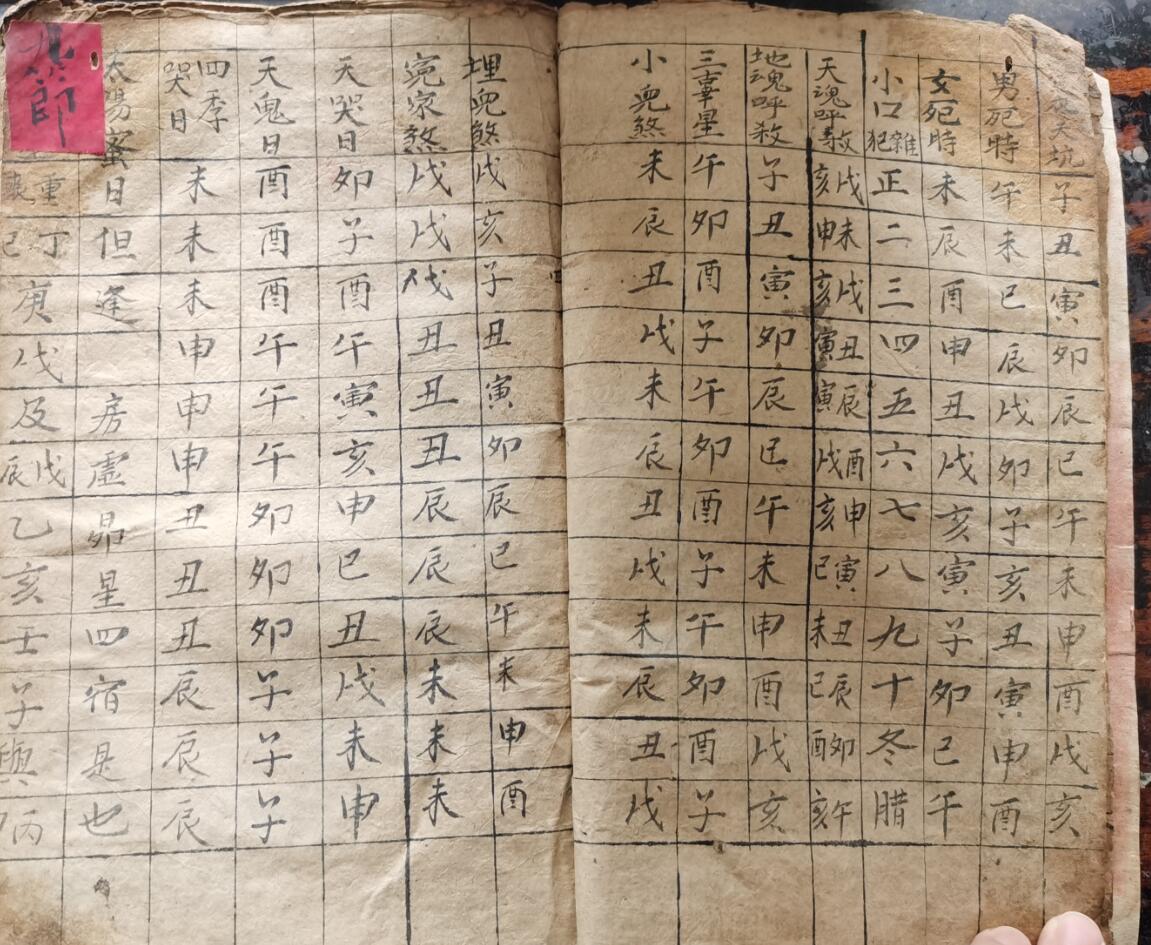 天坑子丑寅卯辰巳午未申酉戌亥
男死時午未巳辰戌卯子亥丑寅申酉
女死時未辰酉申丑戌亥寅子卯巳午
小口雜犯正二三四五六七八九十冬腊
天魂呼殺戌亥未申戌亥丑寅辰寅酉戌申亥寅巳丑未辰巳卯酉午亥
地魂呼殺子丑寅卯辰巳午未申酉戌亥
三辜星午卯酉子午卯酉子午卯酉子
小兇煞未辰丑戌未辰丑戌未辰丑戌
埋兇煞戌亥子丑寅卯辰巳午未申酉
寃家煞戌戌戌丑丑丑辰辰辰未未未
天哭日卯子酉午寅亥申巳丑戌未申
天鬼日酉酉酉午午午卯卯卯子子子
四季哭日未未未申申申丑丑丑辰辰辰
太陽蜜日但逢房虛昴星四宿是也
重丁己庚戊及戊辰乙亥壬子與丙
節